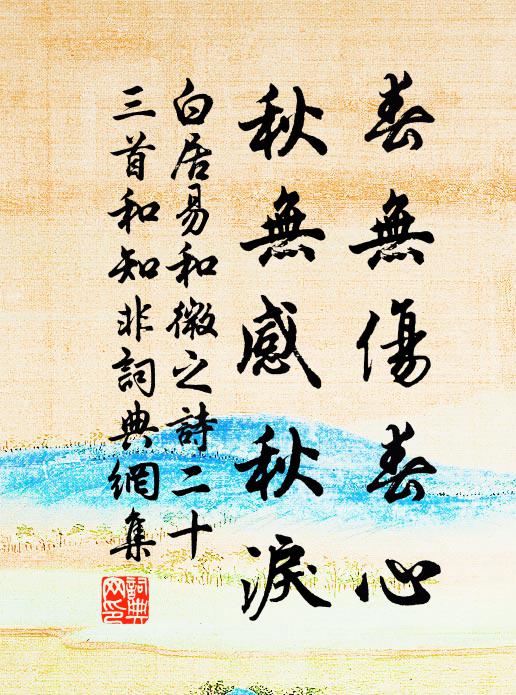 春無傷春心
秋無感秋淚
白居易和微之詩二十
三首和知非詞典網集
詞典